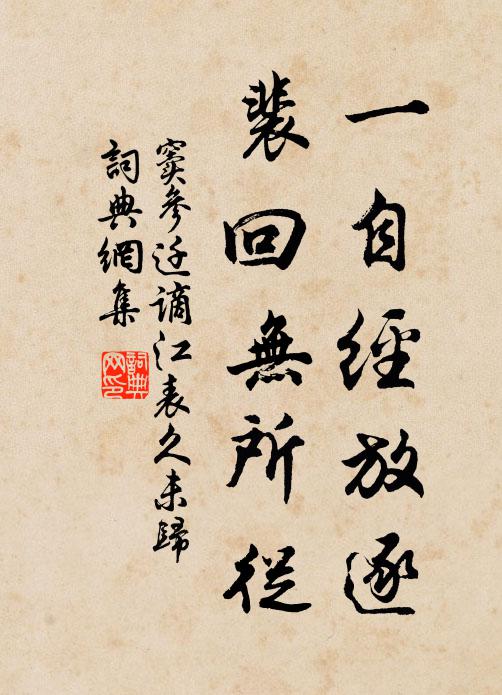 一自經放逐
裴回無所從
竇參迁謫江表久未歸
詞典網集
詞典網印